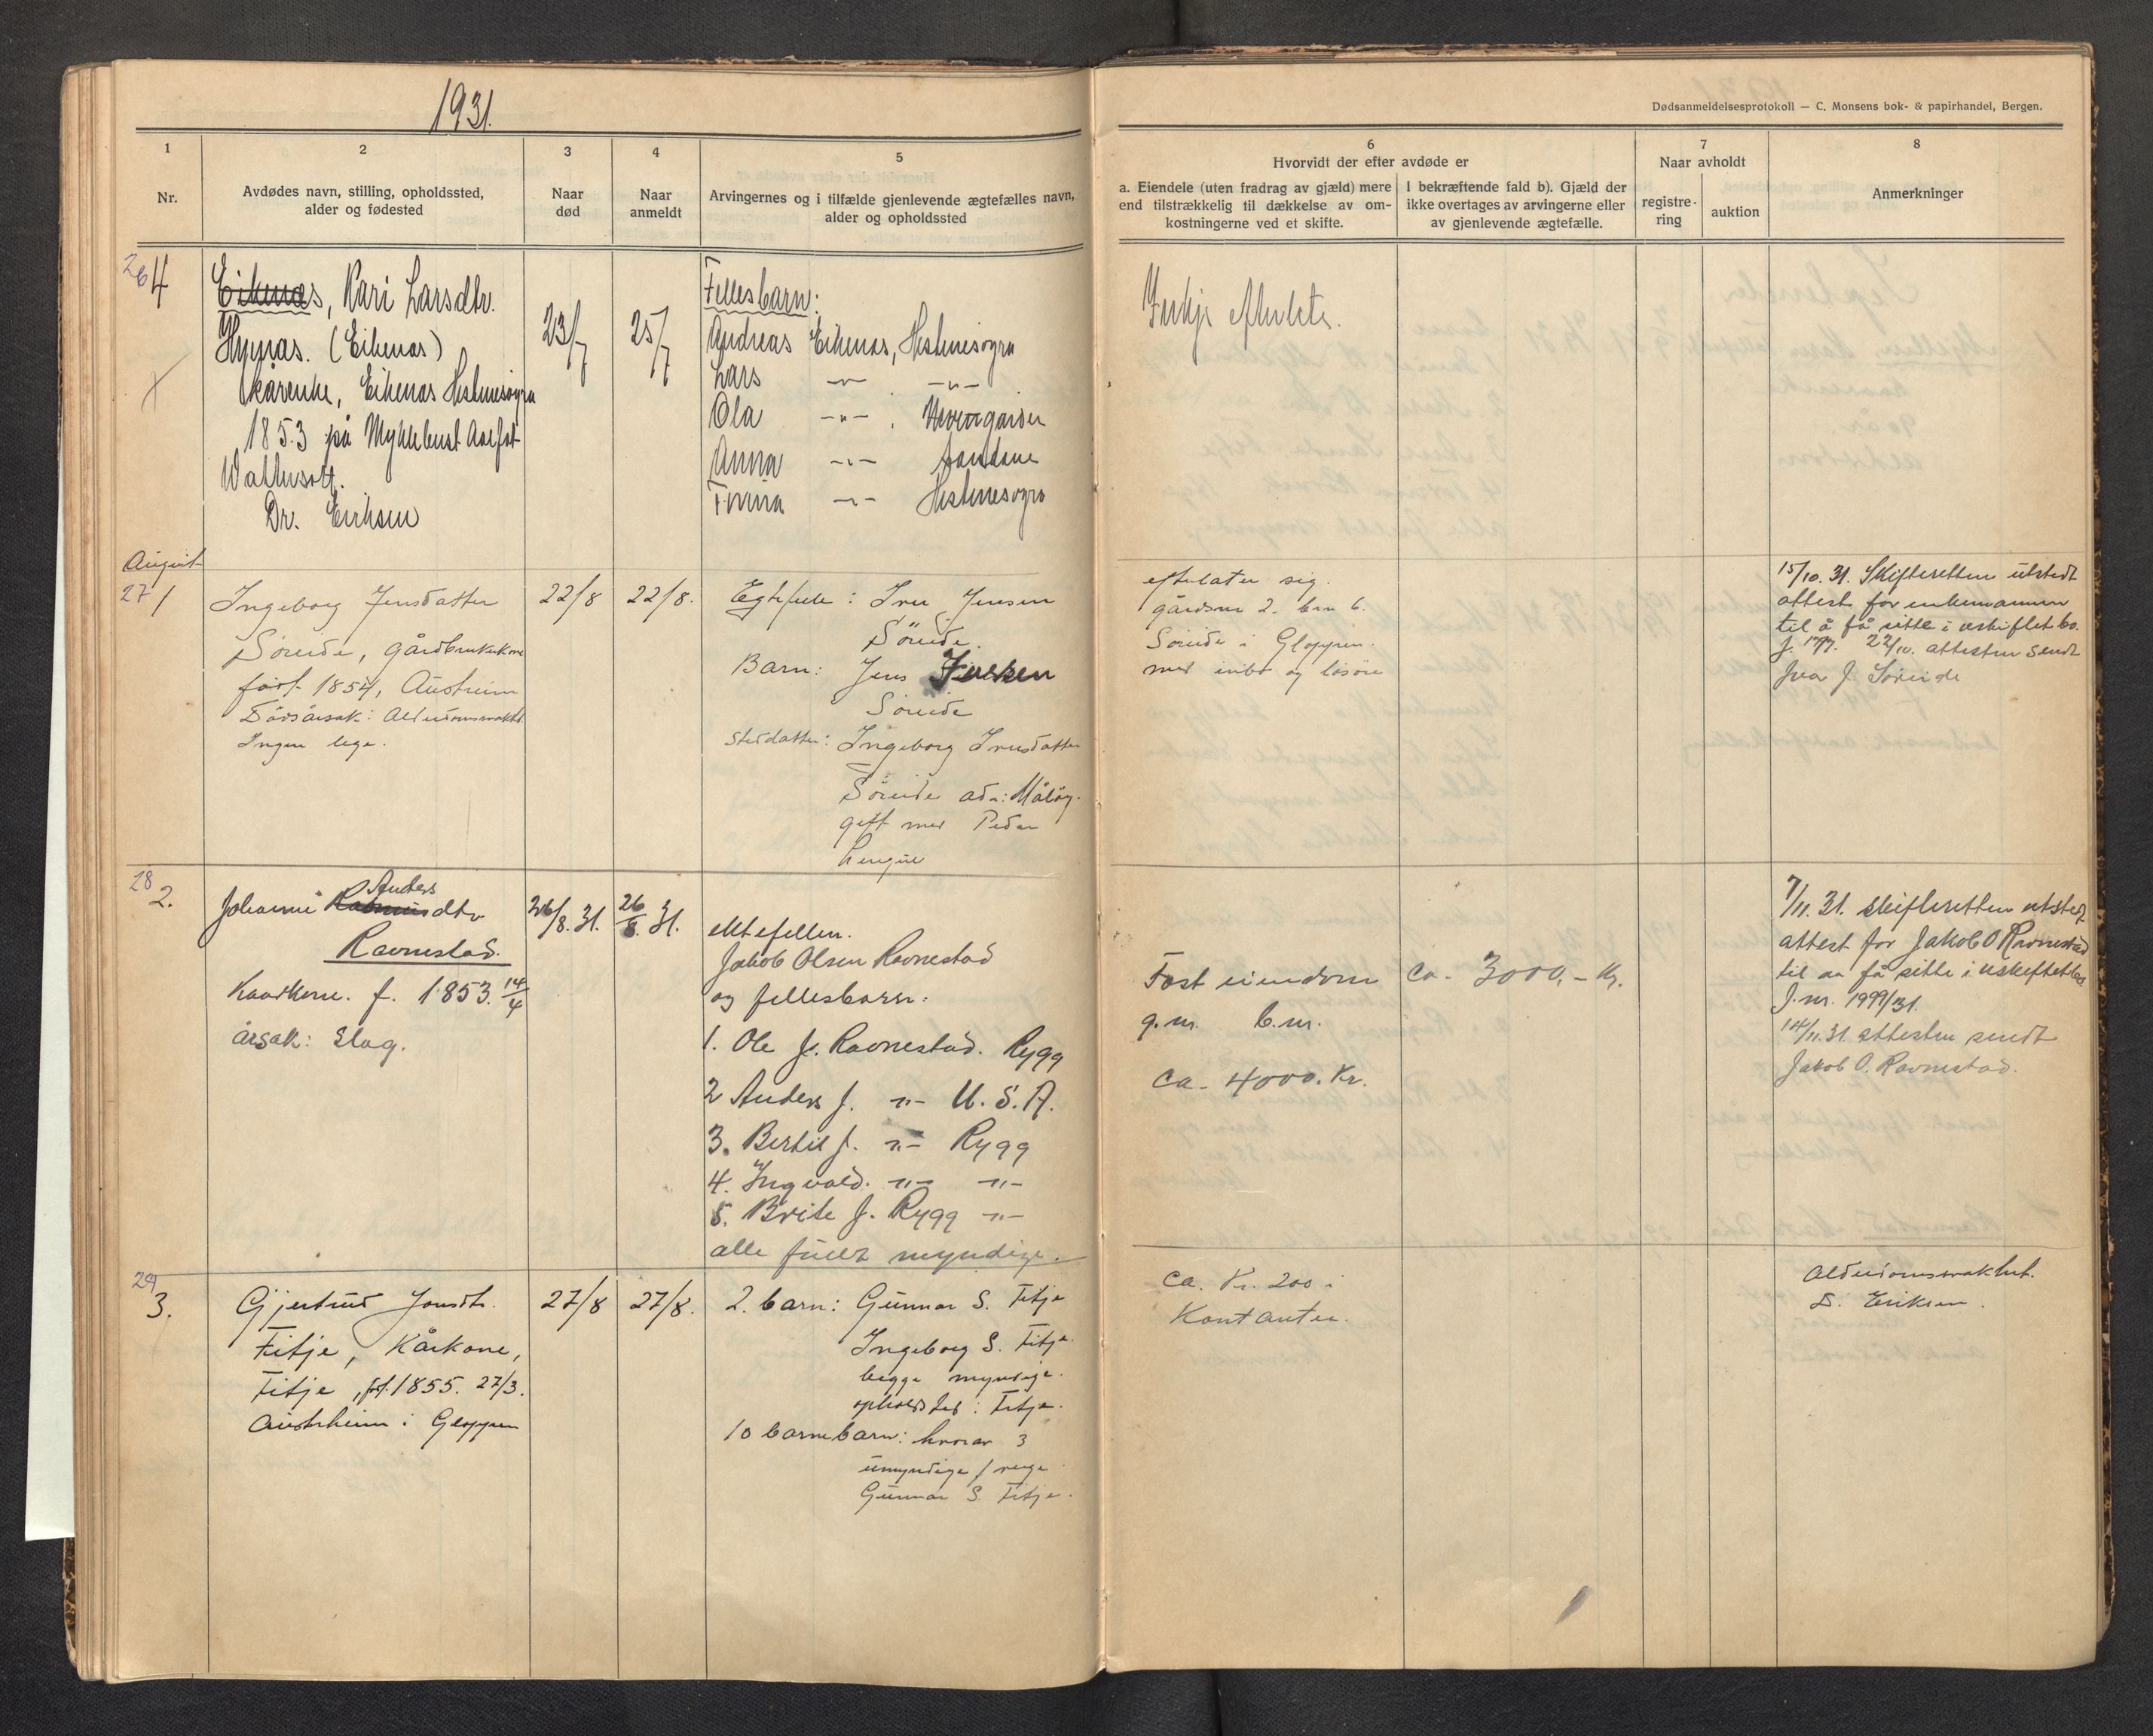 1931.
Dødsanmeldelsesprotokoll — C. Monsens bok- & papirhandel, Bergen.
1
Nr.
2
Avdødes navn, stilling, opholdssted,
alder og fødested
3
Naar
død
4
Naar
anmeldt
5
Arvingernes og i tilfælde gjenlevende ægtefælles navn,
alder og opholdssted
6
Hvorvidt der efter avdøde er
a. Eiendele (uten fradrag av gjæld) mere
end tilstrækkelig til dækkelse av om-
kostningerne ved et skifte.
I bekræftende fald b). Gjæld der
ikke overtages av arvingerne eller
av gjenlevende ægtefælle.
7
Naar avholdt
registre-
ring
auktion
8
Anmerkninger
26
4
Eikenæs, Kari Larsdtr.
(Eikenæs)
Eikenæs
1853 på Myklebust
Vattersott.
Dr. Eriksen
23/7
25/7
Fellesbarn:
Andreas Eikenæs,
Lars -"- -"-
Ola -"-
Anna -"- Sandane
-"-
August
27
1
Ingeborg Jensdatter
Söreide, gårdbrukerkone
født 1854, Austreim
Dödsårsak:
Ingen lege.
22/8
22/8.
Egtefelle: Iver Jensen
Söreide.
Barn: Jens
Söreide
Stedatter: Ingeborg Iversdatter
Söreide adr: Måløy.
gift med Peder
efterlater sig.
gårdsnr 2. brn 6.
Söreide i Gloppen.
med innbo og løsøre
15/10.31. Skifteretten utstedt
attest for enkemannen
til å få sitte i uskiftet bo.
22/10. attesten sendt
Iver J. Söreide
28
2.
Johanne Rasmusdtr
Anders
Ravnestad.
Kaarkone. f. 1853. 14/4
årsak: Slag.
26/8.31.
26/8.31.
ektefellen.
Jakob Olsen Ravnestad
og fellesbarn:
1. Ole J. Ravnestad. Rygg
2 Anders J. -"- U.S.A.
3. Bertil J. -"- Rygg
4. Ingvald. -"- -"-
5. Brite J. Rygg -"-
alle fullt myndige.
Fast eiendom
g.nr. b.nr.
ca. 4000. Kr.
ca. 3000,- Kr.
7/11.31. skifteretten utstedt
attest for Jakob O Ravnestad
til aa få sitte i uskiftet bo
J.nr. 1999/31.
14/11.31 attesten sendt
Jakob O. Ravnestad.
29
3.
Gjertrud Jonsdtr.
Fitje, Kårkone,
Fitje, f. 1855. 27/3.
Austreim i Gloppen
27/8
27/8.
2. barn: Gunnar S. Fitje
Ingeborg S. Fitje.
begge myndige.
opholdsted: Fitje.
10 barnebarn: hvorav 3
umyndige / verge
Gunnar S. Fitje.
ca. Kr. 200 i
Kontanter.
Alderdomssvakhet.
D. Eriksen.